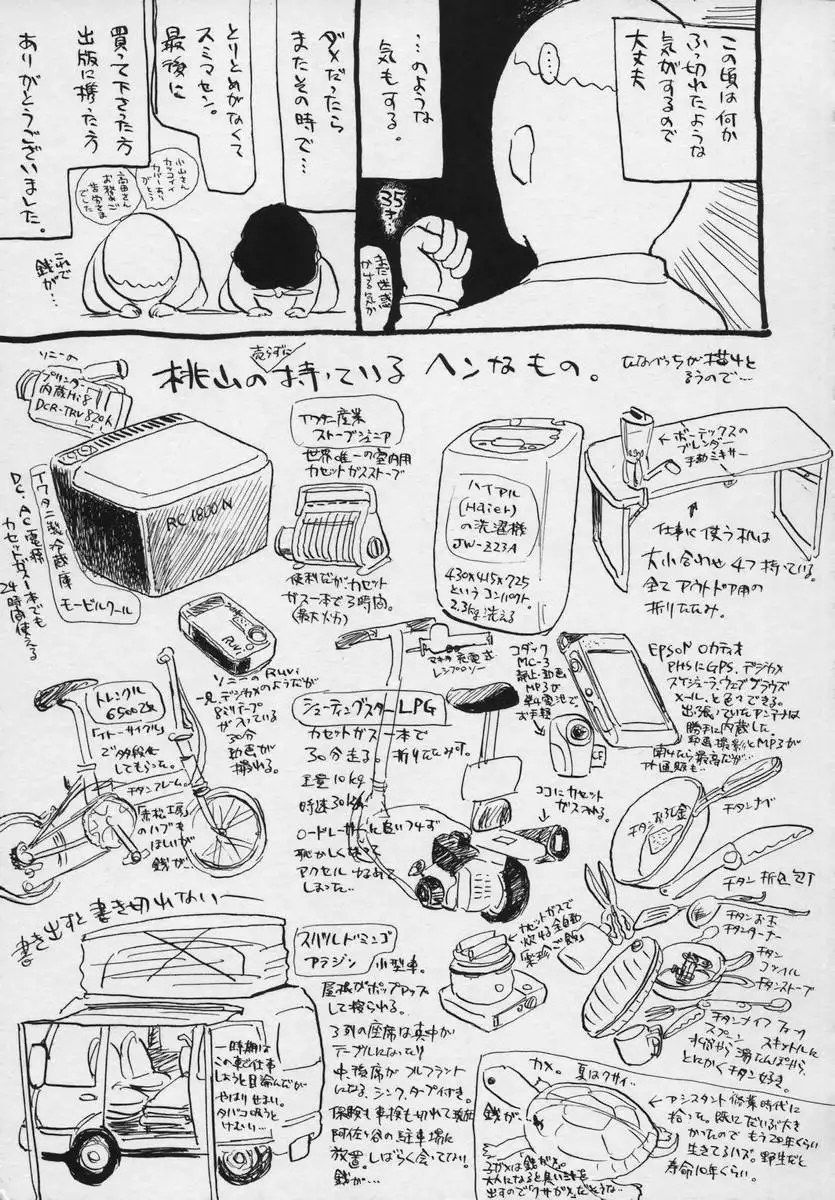 この頃は何か
ふっ切れたような
気がするので
大丈夫
…のような
気もする。
35才。
ダメだったら
またその時で…
とりとめがなくて
スミマセン。
最後に
買って下さった方
出版に携った方
ありがとうございました。
小山さん
カッコイイ
カバーあり
がとう
高田さん
お疲れさま
でした
これで
銭が…
桃山の持っているヘンなもの。
売らずに
ソニーの
プリンター
内蔵Hi8
DCR-TRV820K
RC1800N
イワタニ製冷蔵庫
モービルクール
DC、AC電源
カセットガス一本でも
24時間使える
イワタニ産業
ストーブジュニア
世界唯一の室内用
カセットガスストーブ
便利だがカセット
ガス一本で3時間。
(最大火力)
ハイアル
(Haier)
の洗濯機
JW-Z23A
430×415×725
というコンパクト。
2.3kg洗える
←ボーテックスの
ブレンダー
手動ミキサー
仕事に使う机は
大小合わせ4つ持っている。
全てアウトドア用の
折りたたみ。
ソニーのRuvi
一見デジカメのようだが
8ミリテープ
が入っている
30分
動画が
撮れる。
トレンクル
6500改
「イトーサイクル」
で多段化
してもらった。
チタンフレーム。
「赤松工房」
のハブも
ほしいが
銭が…
シューティングスターLPG
カセットガス一本で
30分走る。折りたたみ可。
重量10kg
時速30km
ロードレーサーに追いつけず
恥かしくなって
アクセルゆるめて
しまった…
マキタ充電式
レシプロソー
ココにカセット
ガス入れる。
コダック
MC-3
静止・動画
MP3が
単4電池で
お手軽
EPSON ロカティオ
PHSにGPS、デジカメ
スケジューラ、ウェブブラウズ
メールと色々できる。
出っ張っていたアンテナは
勝手に内蔵した。
動画撮影とMP3が
聞けたら最高だが…
チタンおろし金
チタンナベ
チタン折込包丁
チタンお玉
チタンターナー
チタン
コッヘル
チタンストーブ
チタンナイフフォーク
スプーン スキットルに
水筒から湯たんぽから
とにかくチタン好き。
カセットガスで
炊ける全自動
書き出すと書き切れないー
スバルドミンゴ
アラジン 小型車。
屋根がポップアップ
して捨られる。
3列の座席は真中が
テーブルになったり
中・後席がフルフラット
になる、シンク、タープ付き。
保険も車検も切れて現在
阿佐ヶ谷の駐車場に
放置。しばらく会ってない。
銭が…
一時期は
この車で仕事
しようと目論んだが
やはりせまい。
タバコ吸うと
けむい…
カメ。夏はクサイ
銭が…
アシスタント修業時代に
拾った。既にだいぶ大き
かったのでもう20年くらい
生きてるハズ。野生だと
寿命10年くらい。
子ガメは銭がメ。
大人になると臭い液を
出すので「クサガメ」だそうな…